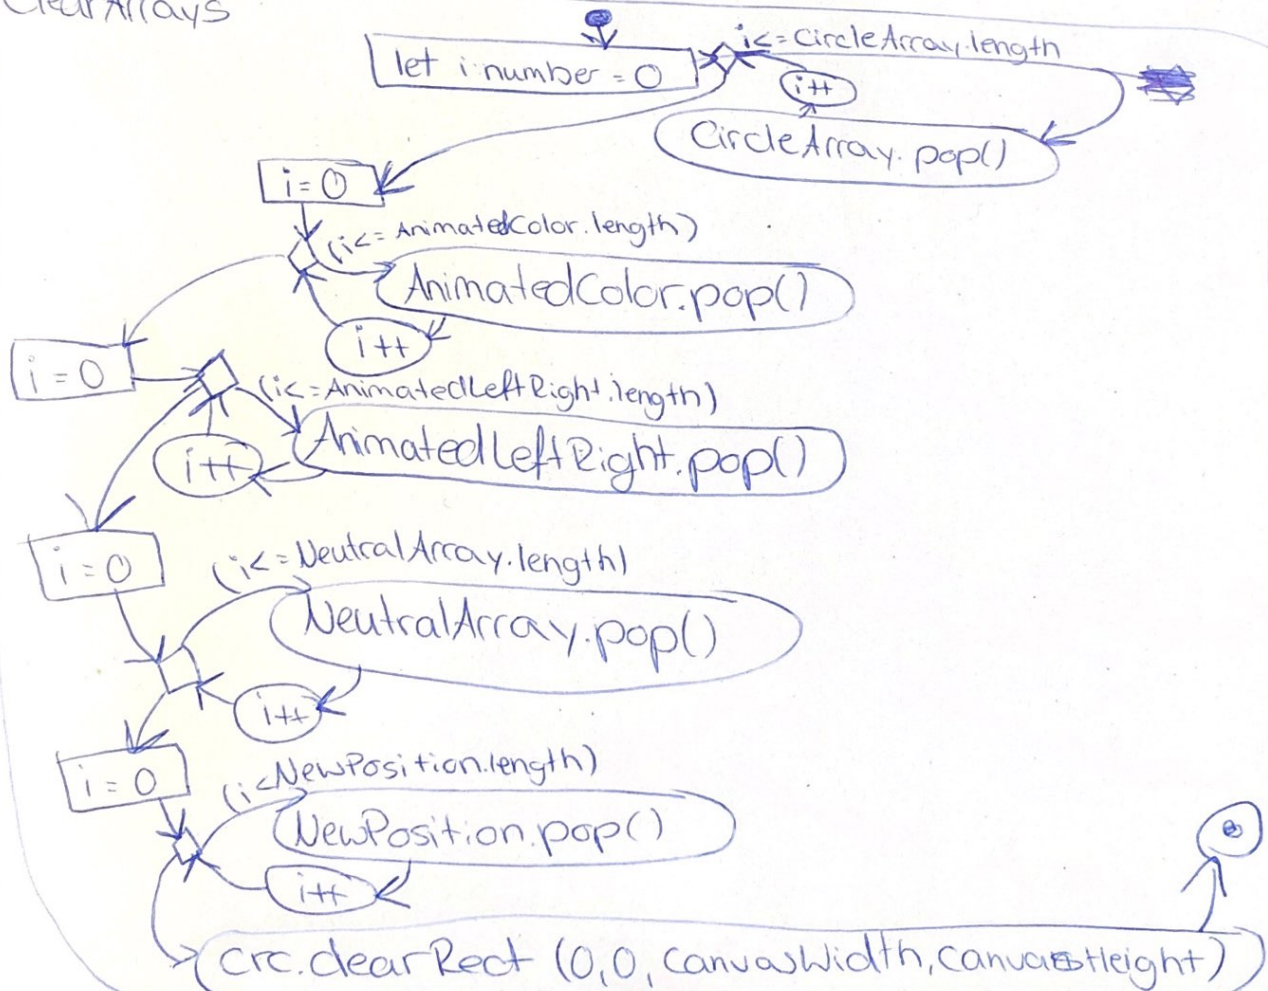 ClearArrays
i<=CircleArray.length
let i:number = 0
i++
CircleArray.pop()
i=0
(i<= AnimatedColor.length)
AnimatedColor.pop()
i++
i=0
(i<=AnimatedLeftRight.length)
AnimatedLeftRight.pop()
i++
i=0
(i<=NeutralArray.length)
NeutralArray.pop()
i++
i=0
(i<NewPosition.length)
NewPosition.pop()
i++
crc.clearRect (0,0, canvasWidth, canvasHeight)